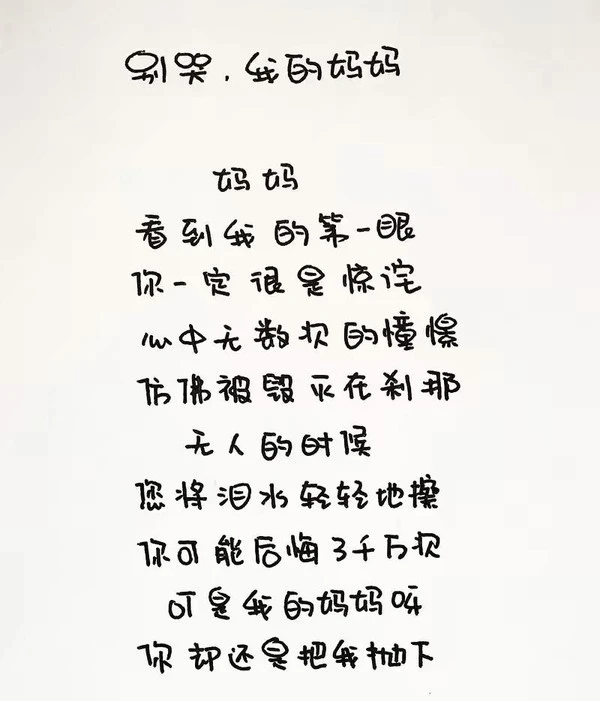 别哭，我的妈妈
妈妈
看到我的第一眼
你一定很是惊诧
心中无数次的憧憬
仿佛被毁灭在刹那
无人的时候
您将泪水轻轻地擦
你可能后悔了千万次
可是我的妈妈呀
你却还是把我抛下